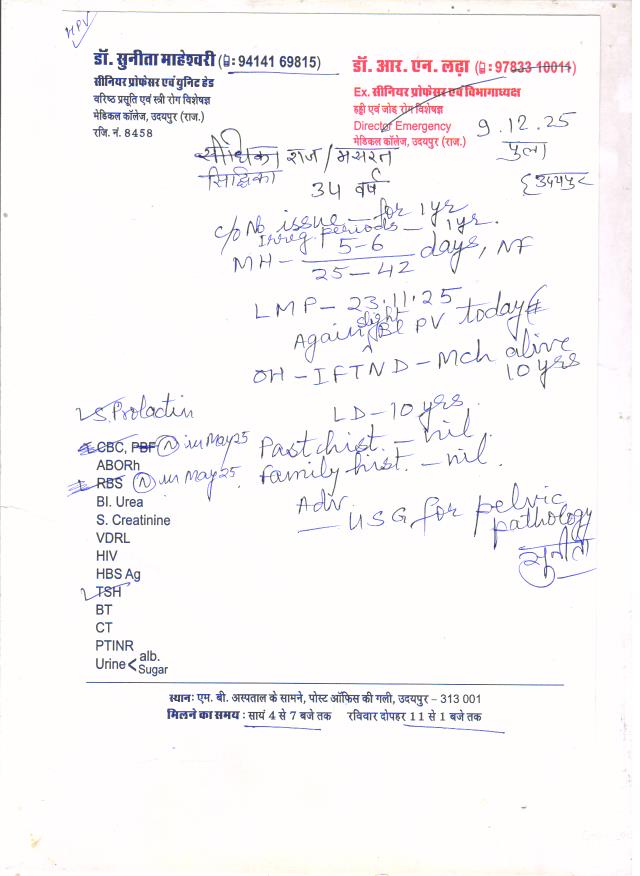 HPV
डॉ. सुनीता माहेश्वरी (📱: 94141 69815)
सीनियर प्रोफेसर एवं युनिट हेड
वरिष्ठ प्रसूति एवं स्त्री रोग विशेषज्ञ
मेडिकल कॉलेज, उदयपुर (राज.)
रजि. नं. 8458
डॉ. आर. एन. लढ़ा (📱: 97833 10011)
Ex. सीनियर प्रोफेसर एवं विभागाध्यक्ष
हड्डी एवं जोड़ रोग विशेषज्ञ
Director Emergency
मेडिकल कॉलेज, उदयपुर (राज.)
9.12.25
पुला
उदयपुर
राज /
सिद्धिका
34 वर्ष
c/o No issue - for 1yr
Irreg. periods - 1yr.
MH - 5-6 / 25-42 days, NF
LMP - 23.11.25
Again slight Bl PV today
OH - IFTND - Mch alive
10 yrs
LD - 10 yrs.
Past hist. - nil.
Family hist. - nil.
Adv.
USG for pelvic
pathology
सुनीता
S. Prolactin
CBC, PBF (N) in May 25
ABORh
RBS (N) in May 25
Bl. Urea
S. Creatinine
VDRL
HIV
HBS Ag
TSH
BT
CT
PTINR
Urine < alb.
Sugar
स्थान: एम. बी. अस्पताल के सामने, पोस्ट ऑफिस की गली, उदयपुर – 313 001
मिलने का समय : सायं 4 से 7 बजे तक रविवार दोपहर 11 से 1 बजे तक